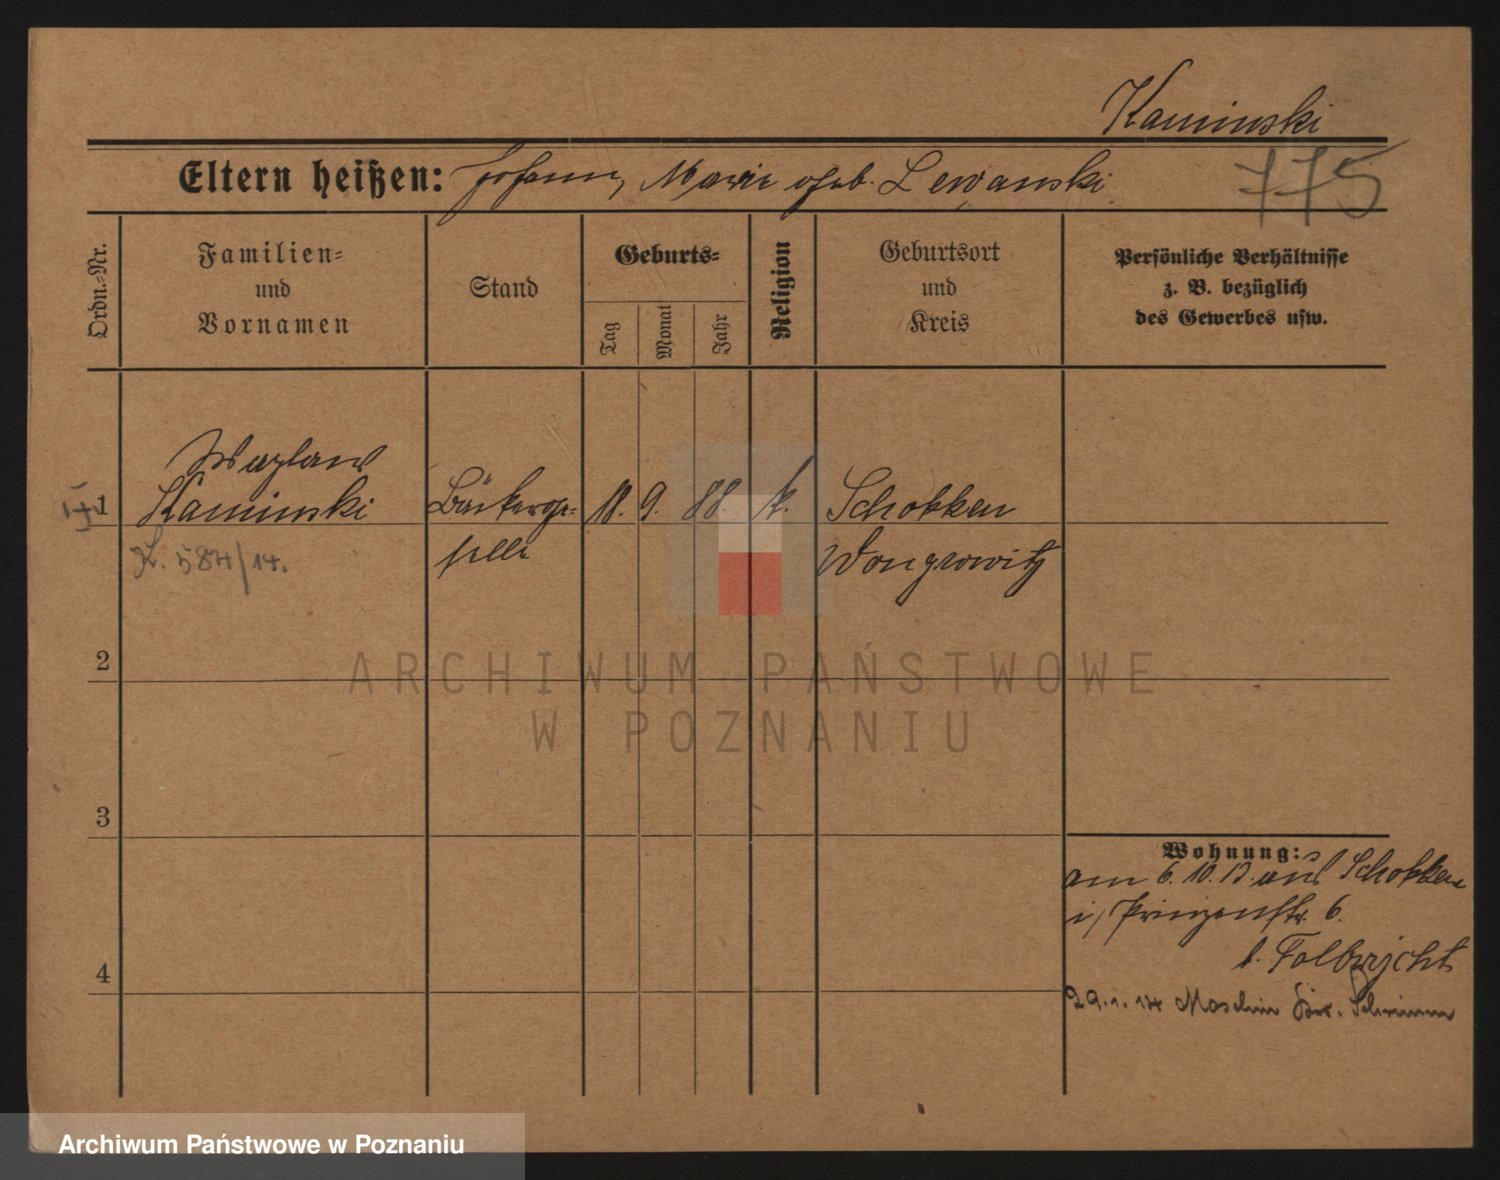 Kaminski
775
Eltern heißen: Johann, Marie geb. Lewanski
Ordn.-Nr.
Familien-
und
Vornamen
Stand
Geburts-
Tag
Monat
Jahr
Religion
Geburtsort
und
Kreis
Persönliche Verhältnisse
z. B. bezüglich
des Gewerbes usw.
1
Wazlaw
Kaminski
Bäckerge-
selle
18. 9. 88. k.
Schokken
Wongrowitz
K. 584/14.
2
3
4
Wohnung:
am 6. 10. 13. aus Schokken
Prinzenstr. 6.
b. Folbrycht
29. 1. 14 Moschin Kr. Schrimm
ARCHIWUM PAŃSTWOWE
W POZNANIU
Archiwum Państwowe w Poznaniu